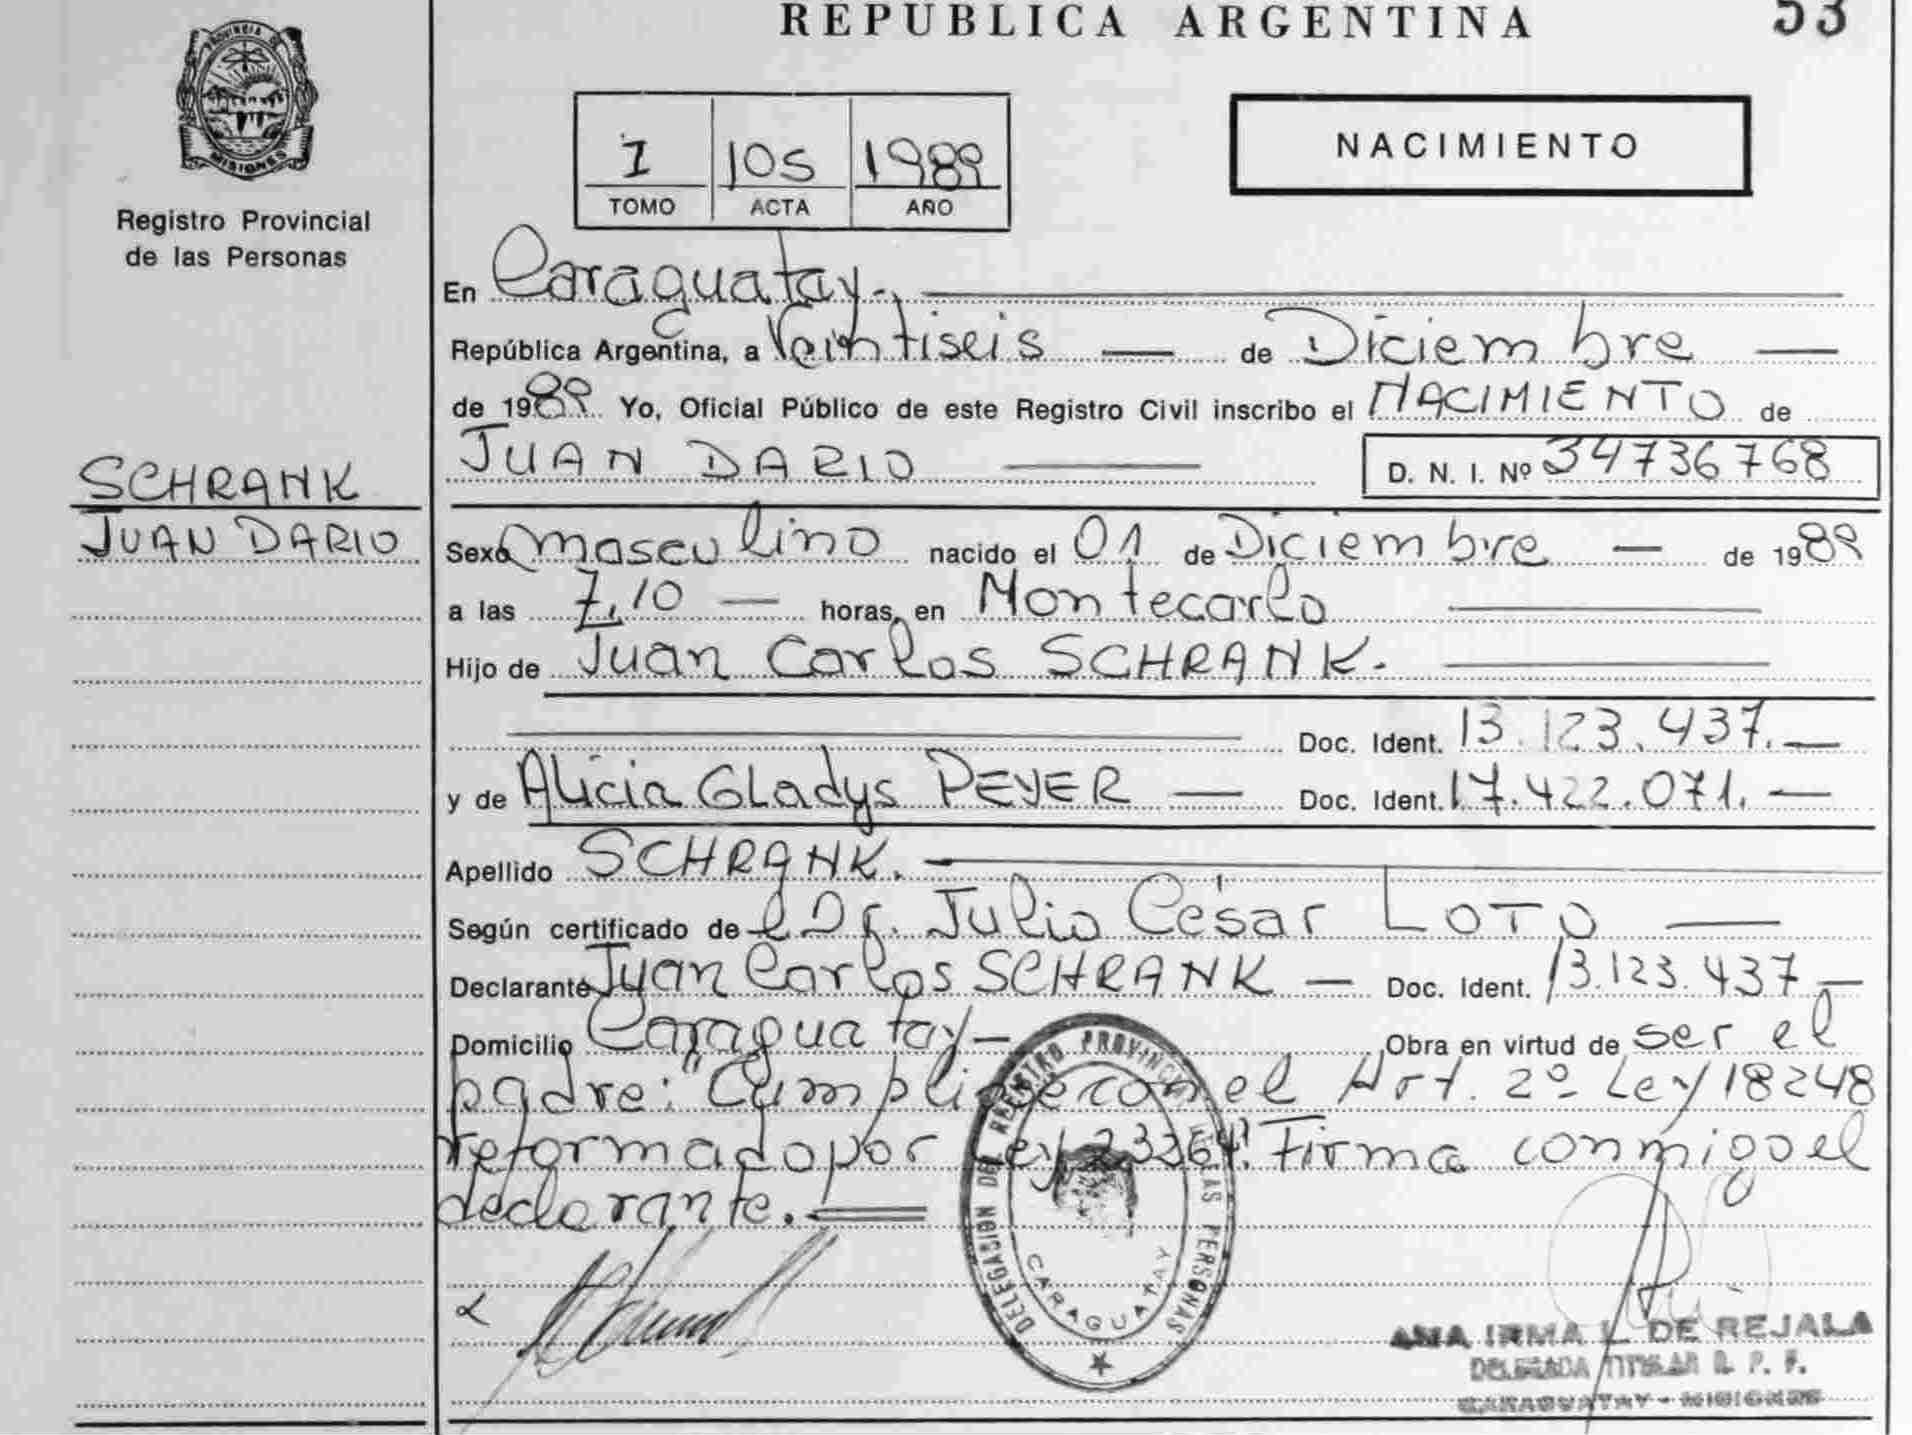 REPUBLICA ARGENTINA
53
PROVINCIA DE
MISIONES
Registro Provincial
de las Personas
I 105 1989
TOMO ACTA AÑO
NACIMIENTO
En Caraguatay.
República Argentina, a Veintiseis — de Diciembre —
de 1989 Yo, Oficial Público de este Registro Civil inscribo el NACIMIENTO de
JUAN DARIO — D. N. I. Nº 34736768
SCHRANK
JUAN DARIO
Sexo masculino nacido el 01 de Diciembre — de 1989
a las 7,10 — horas, en Montecarlo
Hijo de Juan Carlos SCHRANK.
Doc. Ident. 13.123.437.—
y de Alicia Gladys PEYER — Doc. Ident. 17.422.071.—
Apellido SCHRANK.
Según certificado del Dr. Julio César LOTO —
Declarante Juan Carlos SCHRANK — Doc. Ident. 13.123.437—
Domicilio Caraguatay— Obra en virtud de ser el
padre: "Cumplióse con el Art. 2º Ley 18248
reformado por Ley 23264". Firma conmigo el
declarante.
DELEGACION DEL REGISTRO PROVINCIAL DE LAS PERSONAS
CARAGUATAY
ANA IRMA L. DE REJALA
DELEGADA TITULAR R. P. P.
CARAGUATAY - MISIONES